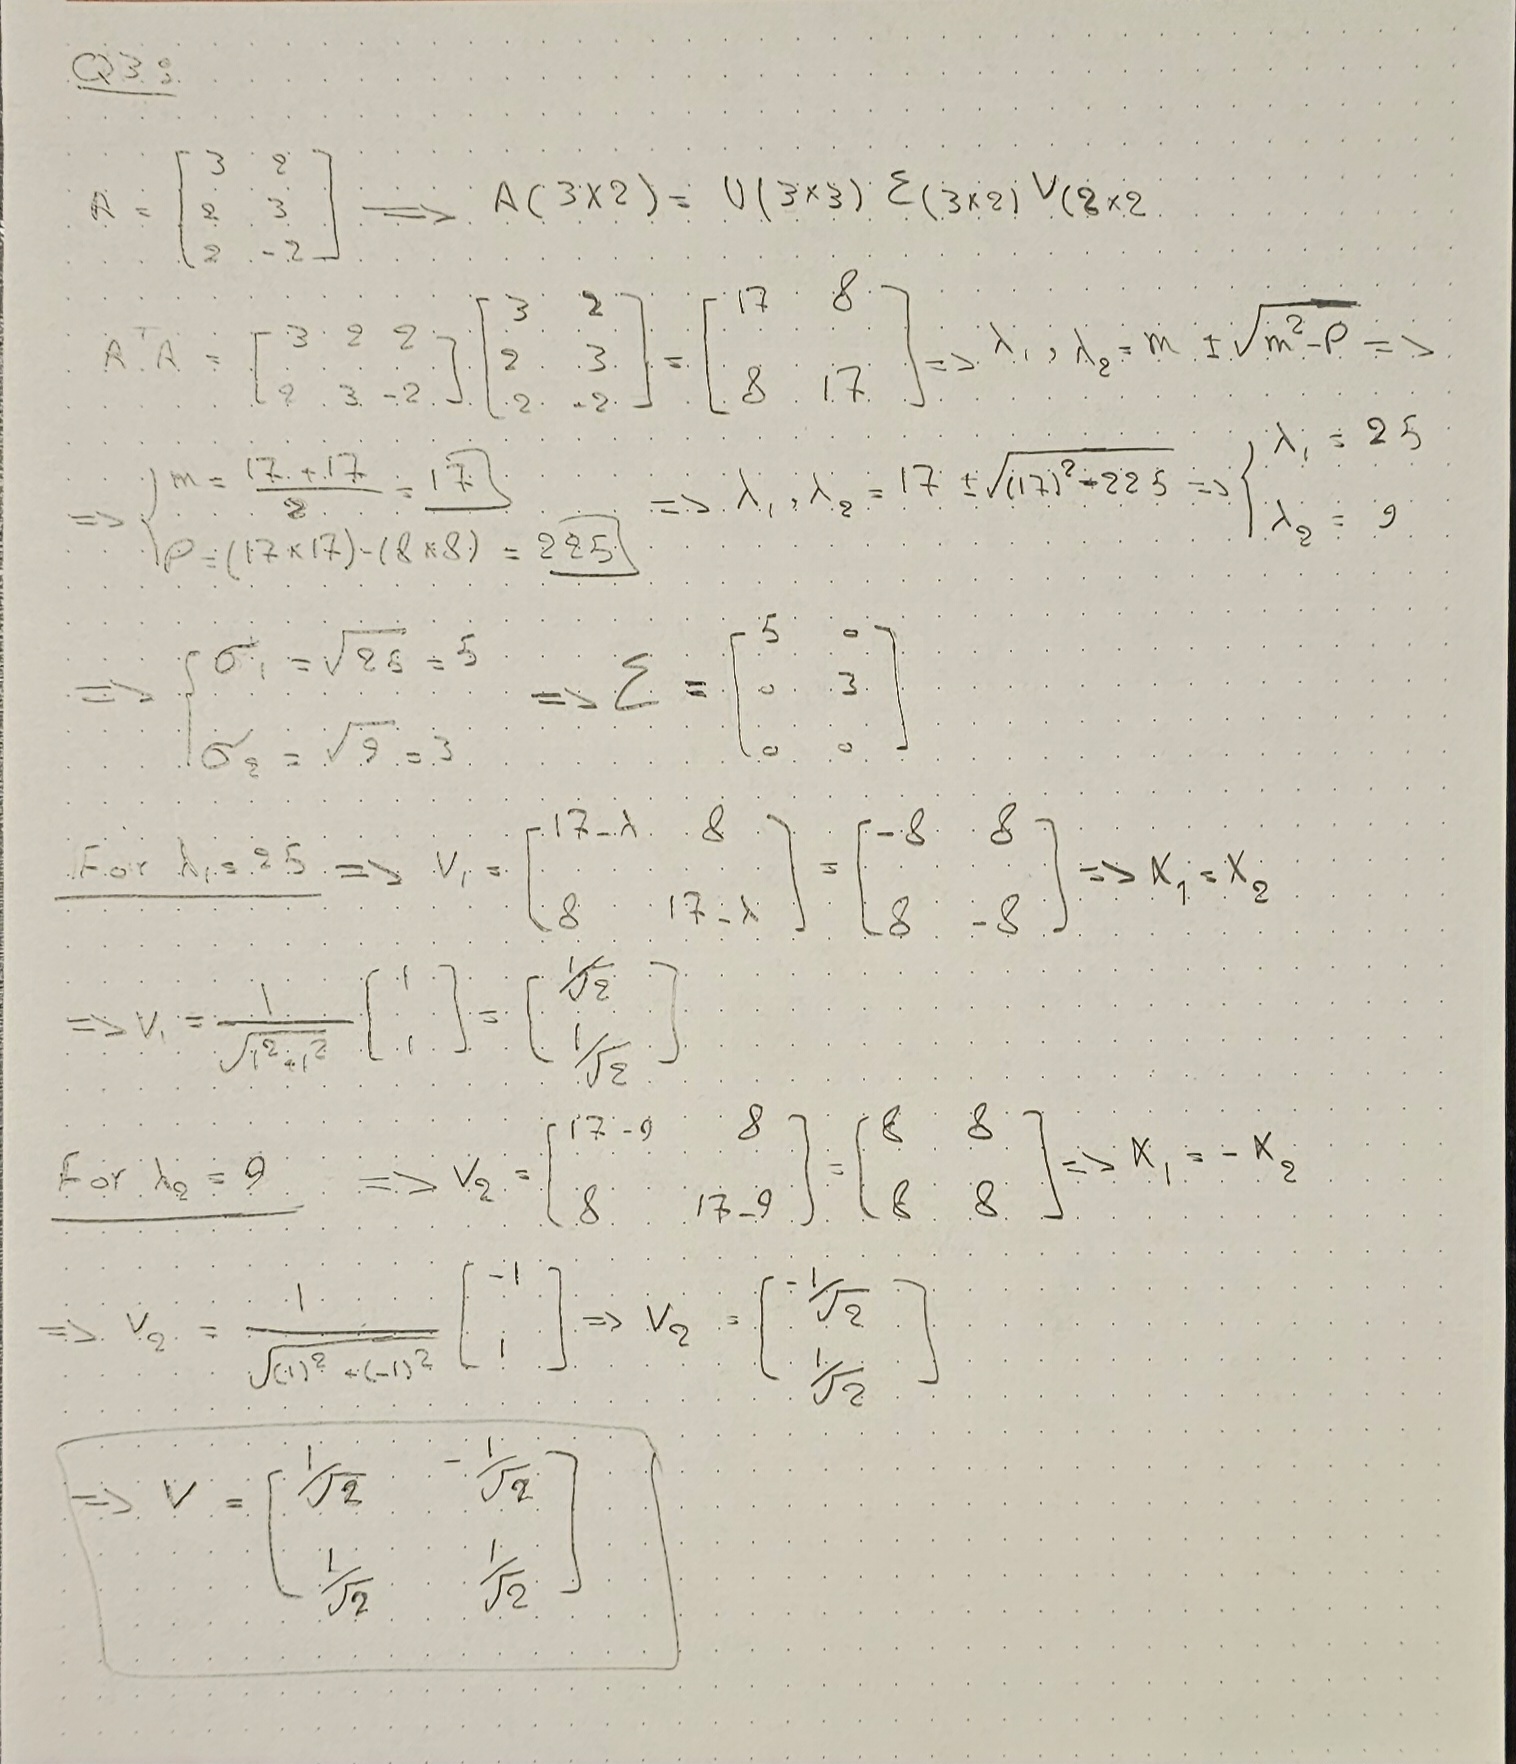 Q3:
A = [3 2; 2 3; 2 -2] => A(3×2) = U(3×3) Σ(3×2) V(2×2
AᵀA = [3 2 2; 2 3 -2] [3 2; 2 3; 2 -2] = [17 8; 8 17] => λ₁, λ₂ = m ± √(m²-P) =>
=> { m = (17+17)/2 = 17 ; P = (17×17)-(8×8) = 225 => λ₁, λ₂ = 17 ± √((17)²-225) => { λ₁ = 25 ; λ₂ = 9
=> { σ₁ = √25 = 5 ; σ₂ = √9 = 3 => Σ = [5 0; 0 3; 0 0]
For λ₁=25 => V₁ = [17-λ 8; 8 17-λ] = [-8 8; 8 -8] => X₁ = X₂
=> V₁ = 1/√(1²+1²) [1; 1] = [1/√2; 1/√2]
For λ₂ = 9 => V₂ = [17-9 8; 8 17-9] = [8 8; 8 8] => X₁ = -X₂
=> V₂ = 1/√((1)²+(-1)²) [-1; 1] => V₂ = [-1/√2; 1/√2]
=> V = [1/√2 -1/√2; 1/√2 1/√2]